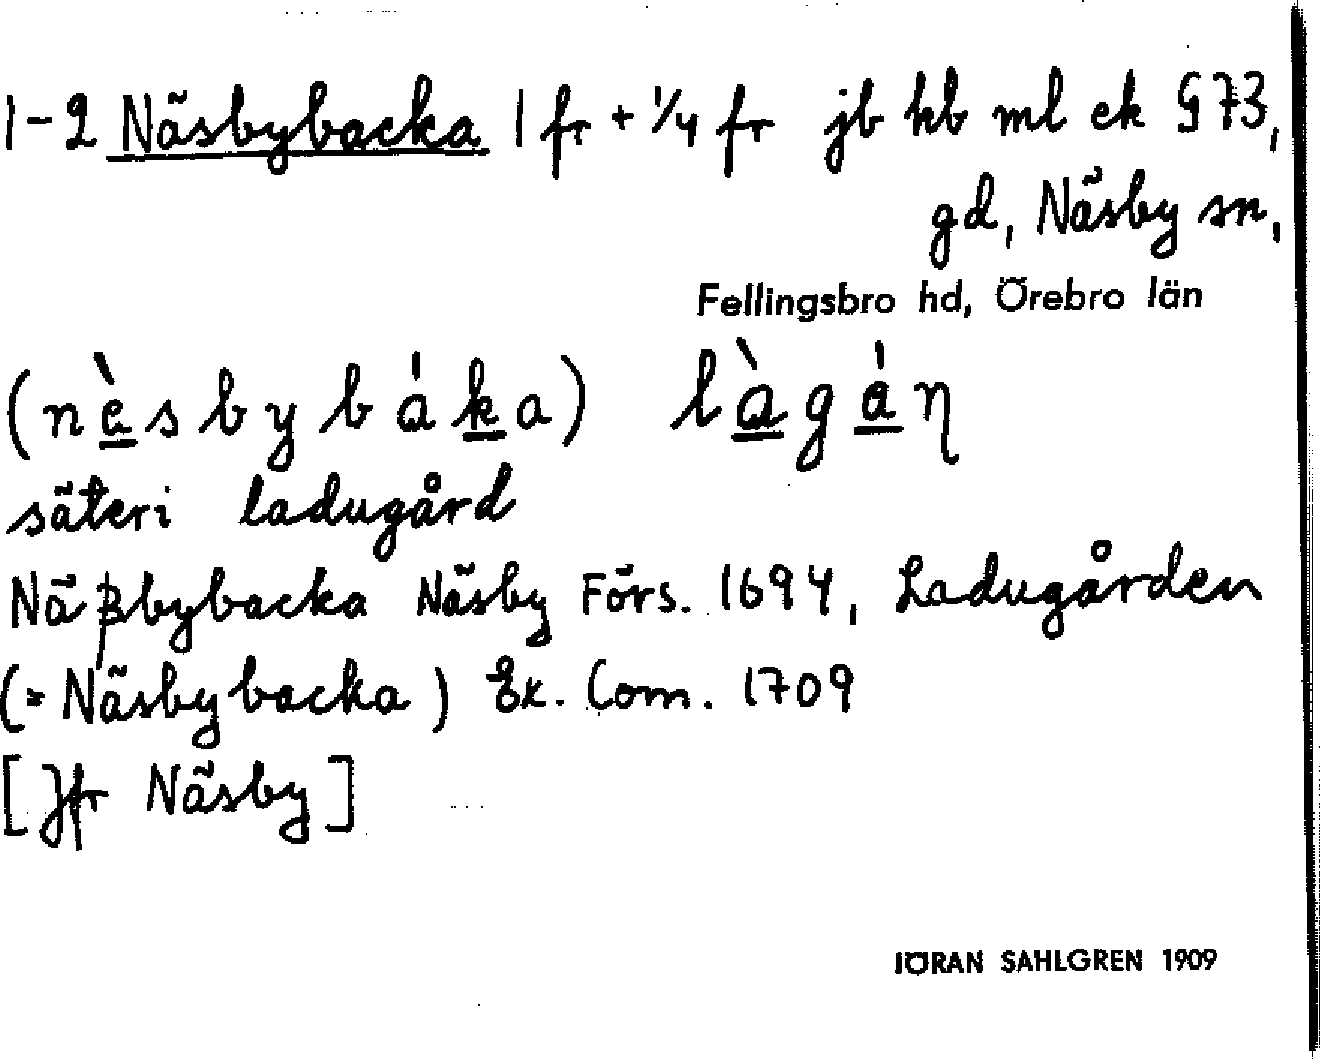 1-2 Näsbybacka 1 fr + 1/4 fr jb kb ml ek G73,
gd, Näsby sn,
Fellingsbro hd, Örebro län
(nèsbybáka) làgáŋ
säteri ladugård
Näßbybacka Näsby Förs. 1694, Ladugården
(= Näsbybacka) Ek. Com. 1709
[Jfr Näsby]
JÖRAN SAHLGREN 1909